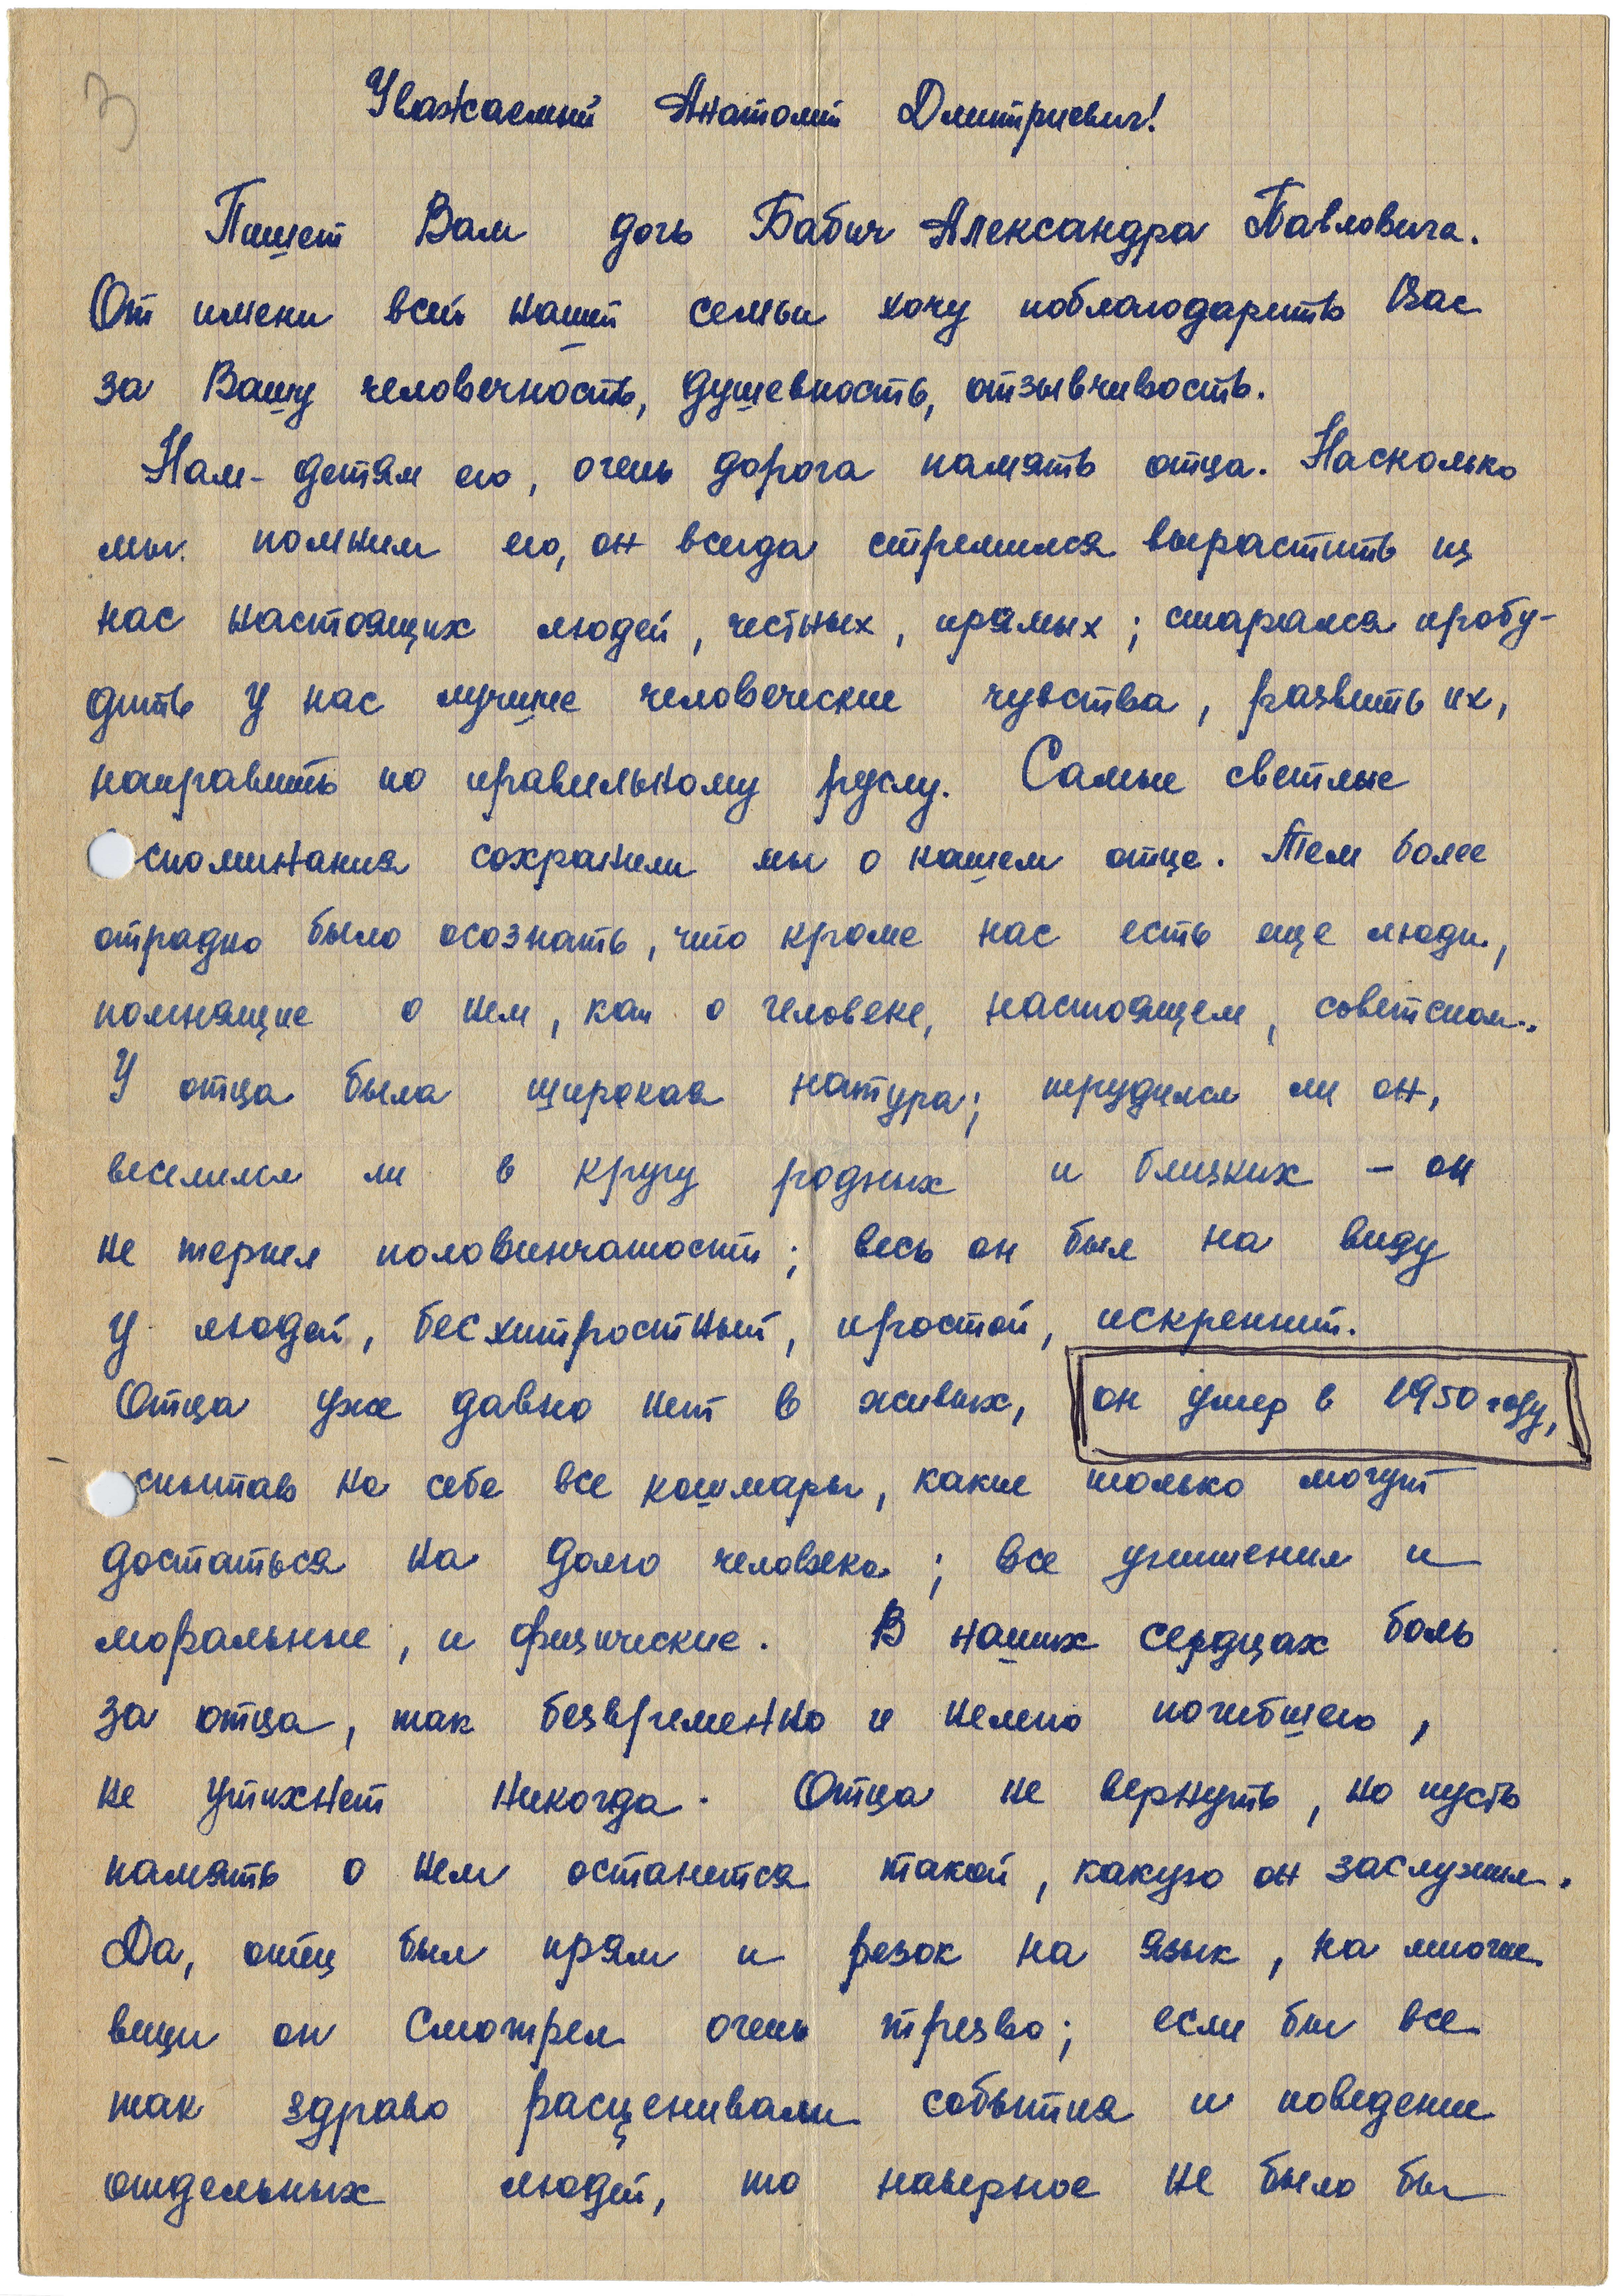 3
Уважаемый Анатолий Дмитриевич!
Пишет Вам дочь Бабич Александра Павловича.
От имени всей нашей семьи хочу поблагодарить Вас
за Вашу человечность, душевность, отзывчивость.
Нам - детям его, очень дорога память отца. Насколько
мы помним его, он всегда стремился вырастить из
нас настоящих людей, честных, прямых; старался пробу-
дить у нас лучшие человеческие чувства, развить их,
направить по правильному руслу. Самые светлые
споминания сохранили мы о нашем отце. Тем более
отрадно было осознать, что кроме нас есть еще люди,
помнящие о нем, как о человеке, настоящем, советском.
У отца была широкая натура; трудился ли он,
веселился ли в кругу родных и близких - он
не терпел половинчатости; весь он был на виду
у людей, бесхитростный, простой, искренний.
Отца уже давно нет в живых, он умер в 1950 году,
спытав на себе все кошмары, какие только могут
достаться на долю человека; все унижения и
моральные, и физические. В наших сердцах боль
за отца, так безвременно и нелепо погибшего,
не утихнет никогда. Отца не вернуть, но пусть
память о нем останется такой, какую он заслужил.
Да, отец был прям и резок на язык, на многие
вещи он смотрел очень трезво; если бы все
так здраво расценивали события и поведение
отдельных людей, то наверное не было бы